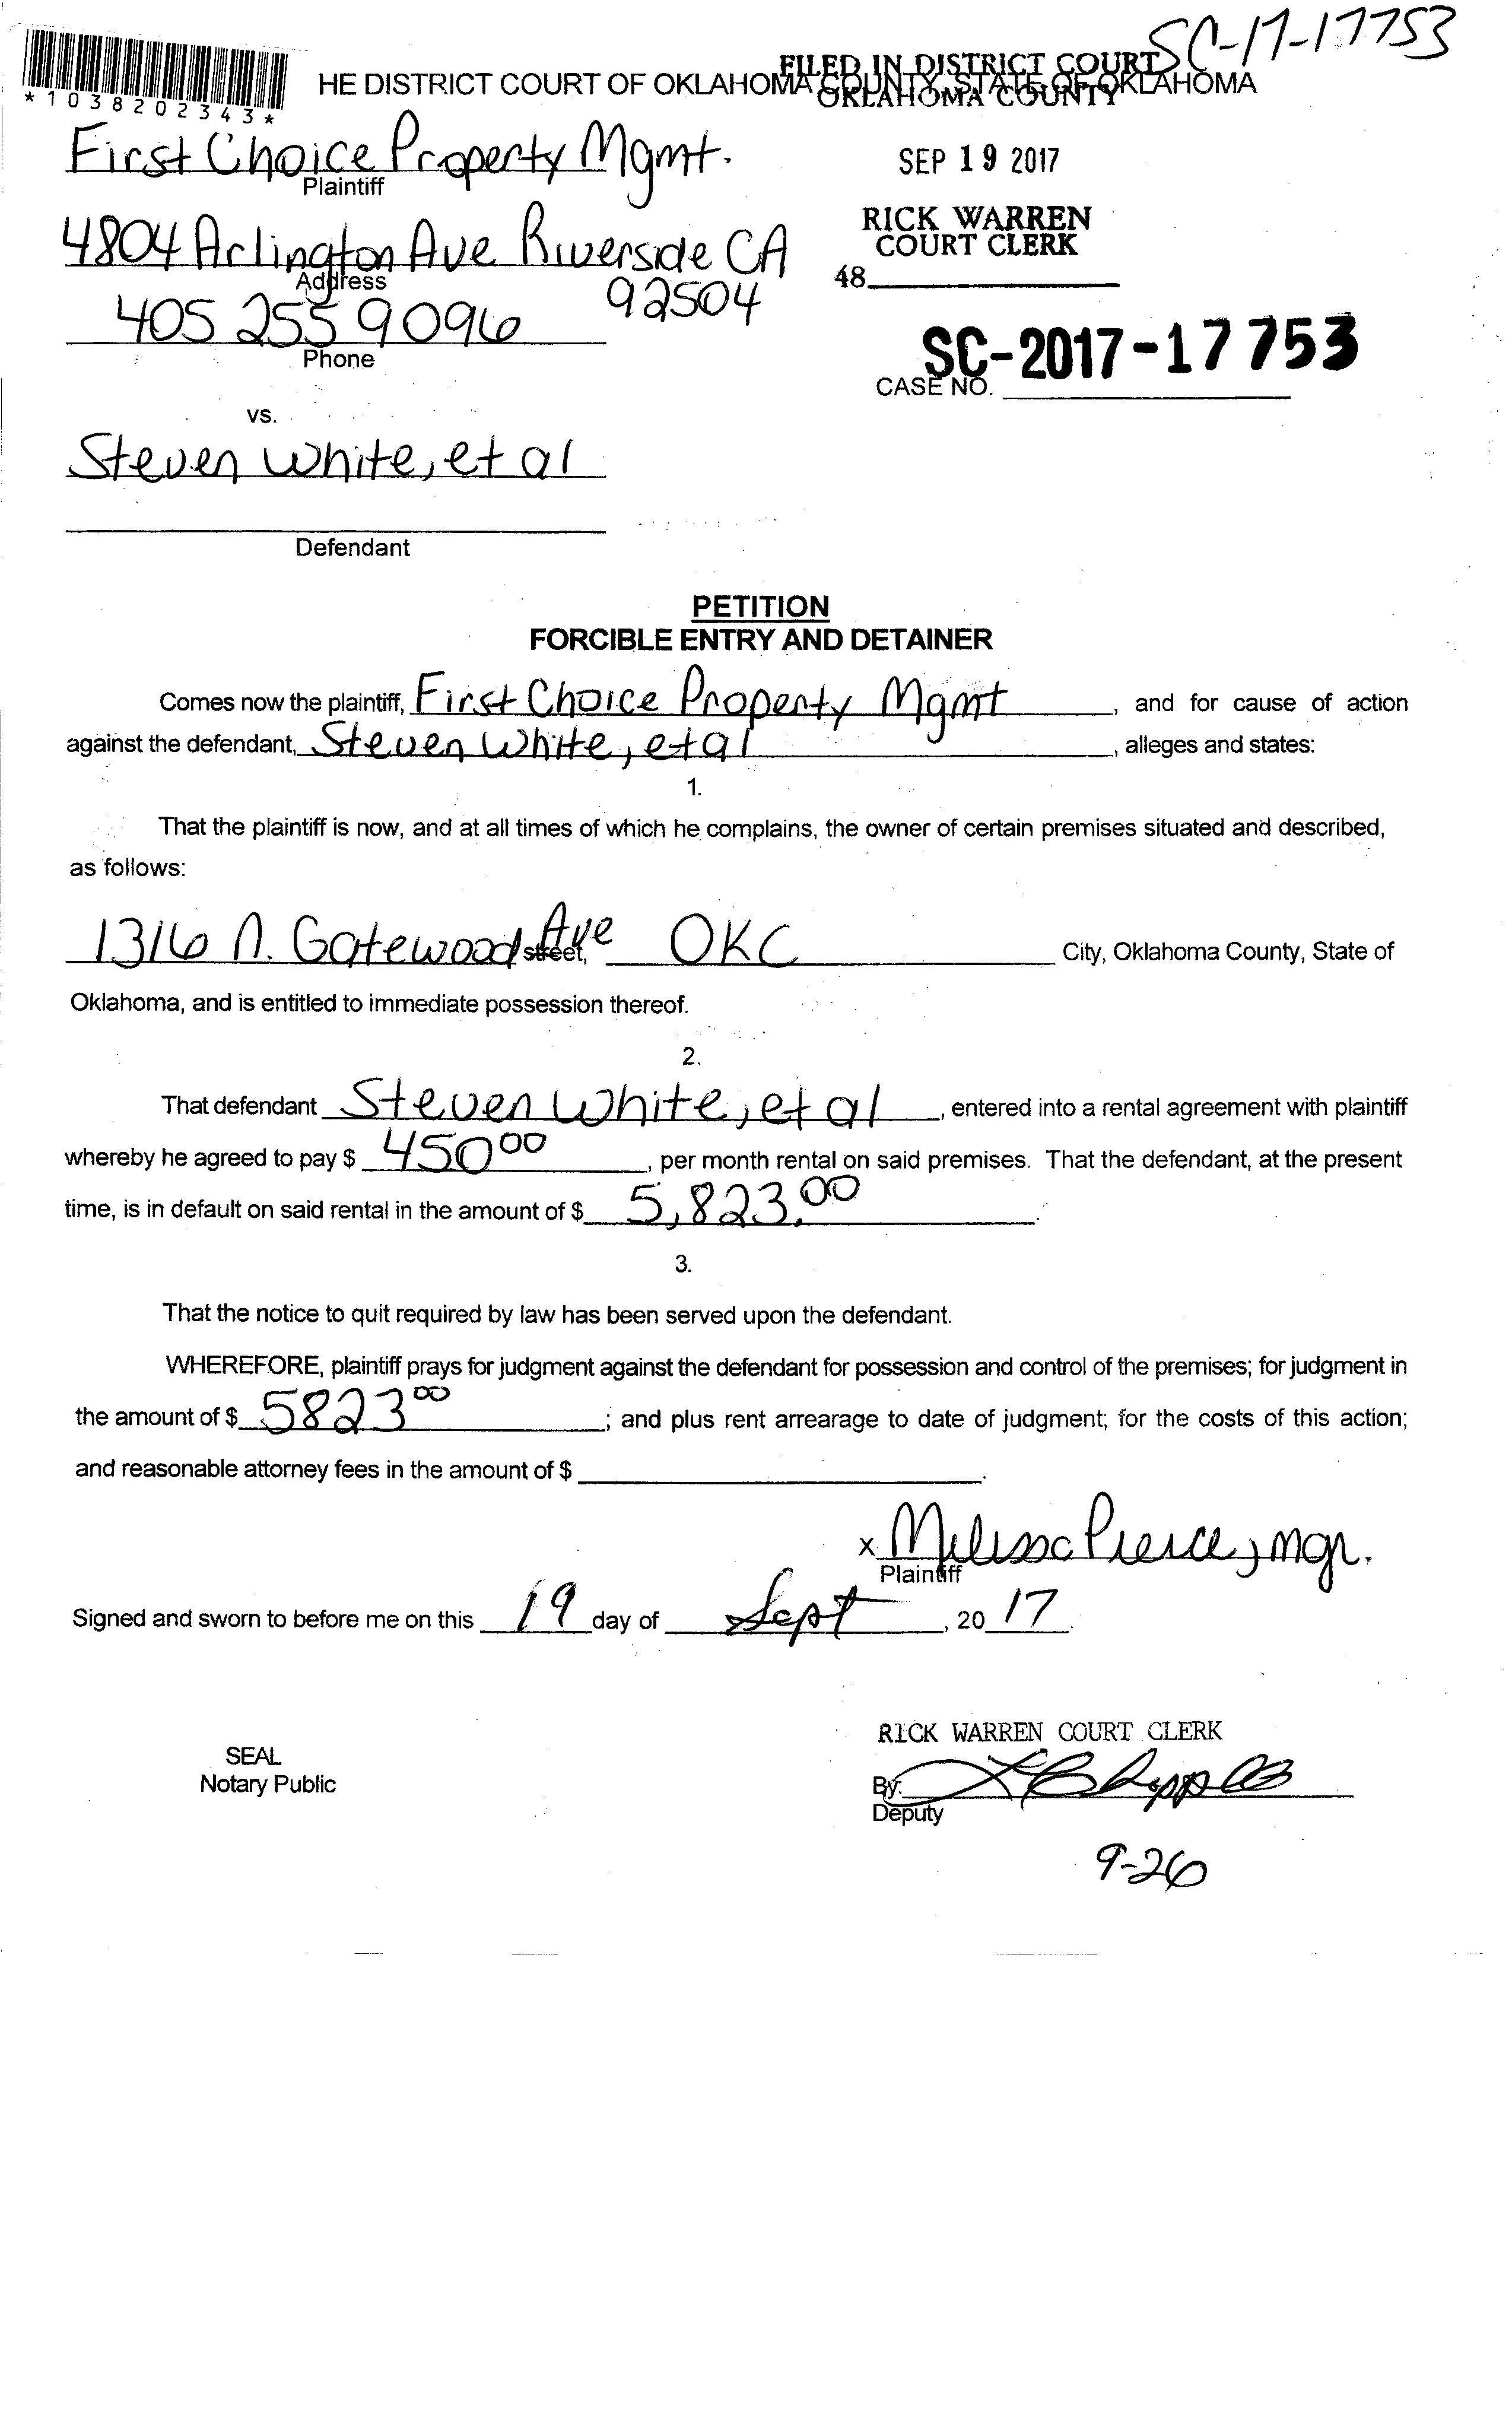 SC-17-17753
FILED IN DISTRICT COURT
OKLAHOMA COUNTY
HE DISTRICT COURT OF OKLAHOMA COUNTY, STATE OF OKLAHOMA
*1038202343*
First Choice Property Mgmt.
Plaintiff
SEP 19 2017
RICK WARREN
COURT CLERK
4804 Arlington Ave Riverside CA
Address
92504
48
405 255 9096
Phone
SC-2017-17753
CASE NO.
vs.
Steven White, et al
Defendant
PETITION
FORCIBLE ENTRY AND DETAINER
Comes now the plaintiff, First Choice Property Mgmt, and for cause of action
against the defendant, Steven White, et al, alleges and states:
1.
That the plaintiff is now, and at all times of which he complains, the owner of certain premises situated and described,
as follows:
1316 N. Gatewood Ave street, OKC City, Oklahoma County, State of
Oklahoma, and is entitled to immediate possession thereof.
2.
That defendant Steven White, et al, entered into a rental agreement with plaintiff
whereby he agreed to pay $ 450 00, per month rental on said premises. That the defendant, at the present
time, is in default on said rental in the amount of $ 5,823.00.
3.
That the notice to quit required by law has been served upon the defendant.
WHEREFORE, plaintiff prays for judgment against the defendant for possession and control of the premises; for judgment in
the amount of $ 5823 00; and plus rent arrearage to date of judgment; for the costs of this action;
and reasonable attorney fees in the amount of $ .
x Melissa Pierce, mgr.
Plaintiff
Signed and sworn to before me on this 19 day of Sept, 20 17.
SEAL
Notary Public
RICK WARREN COURT CLERK
By:
Deputy
9-26